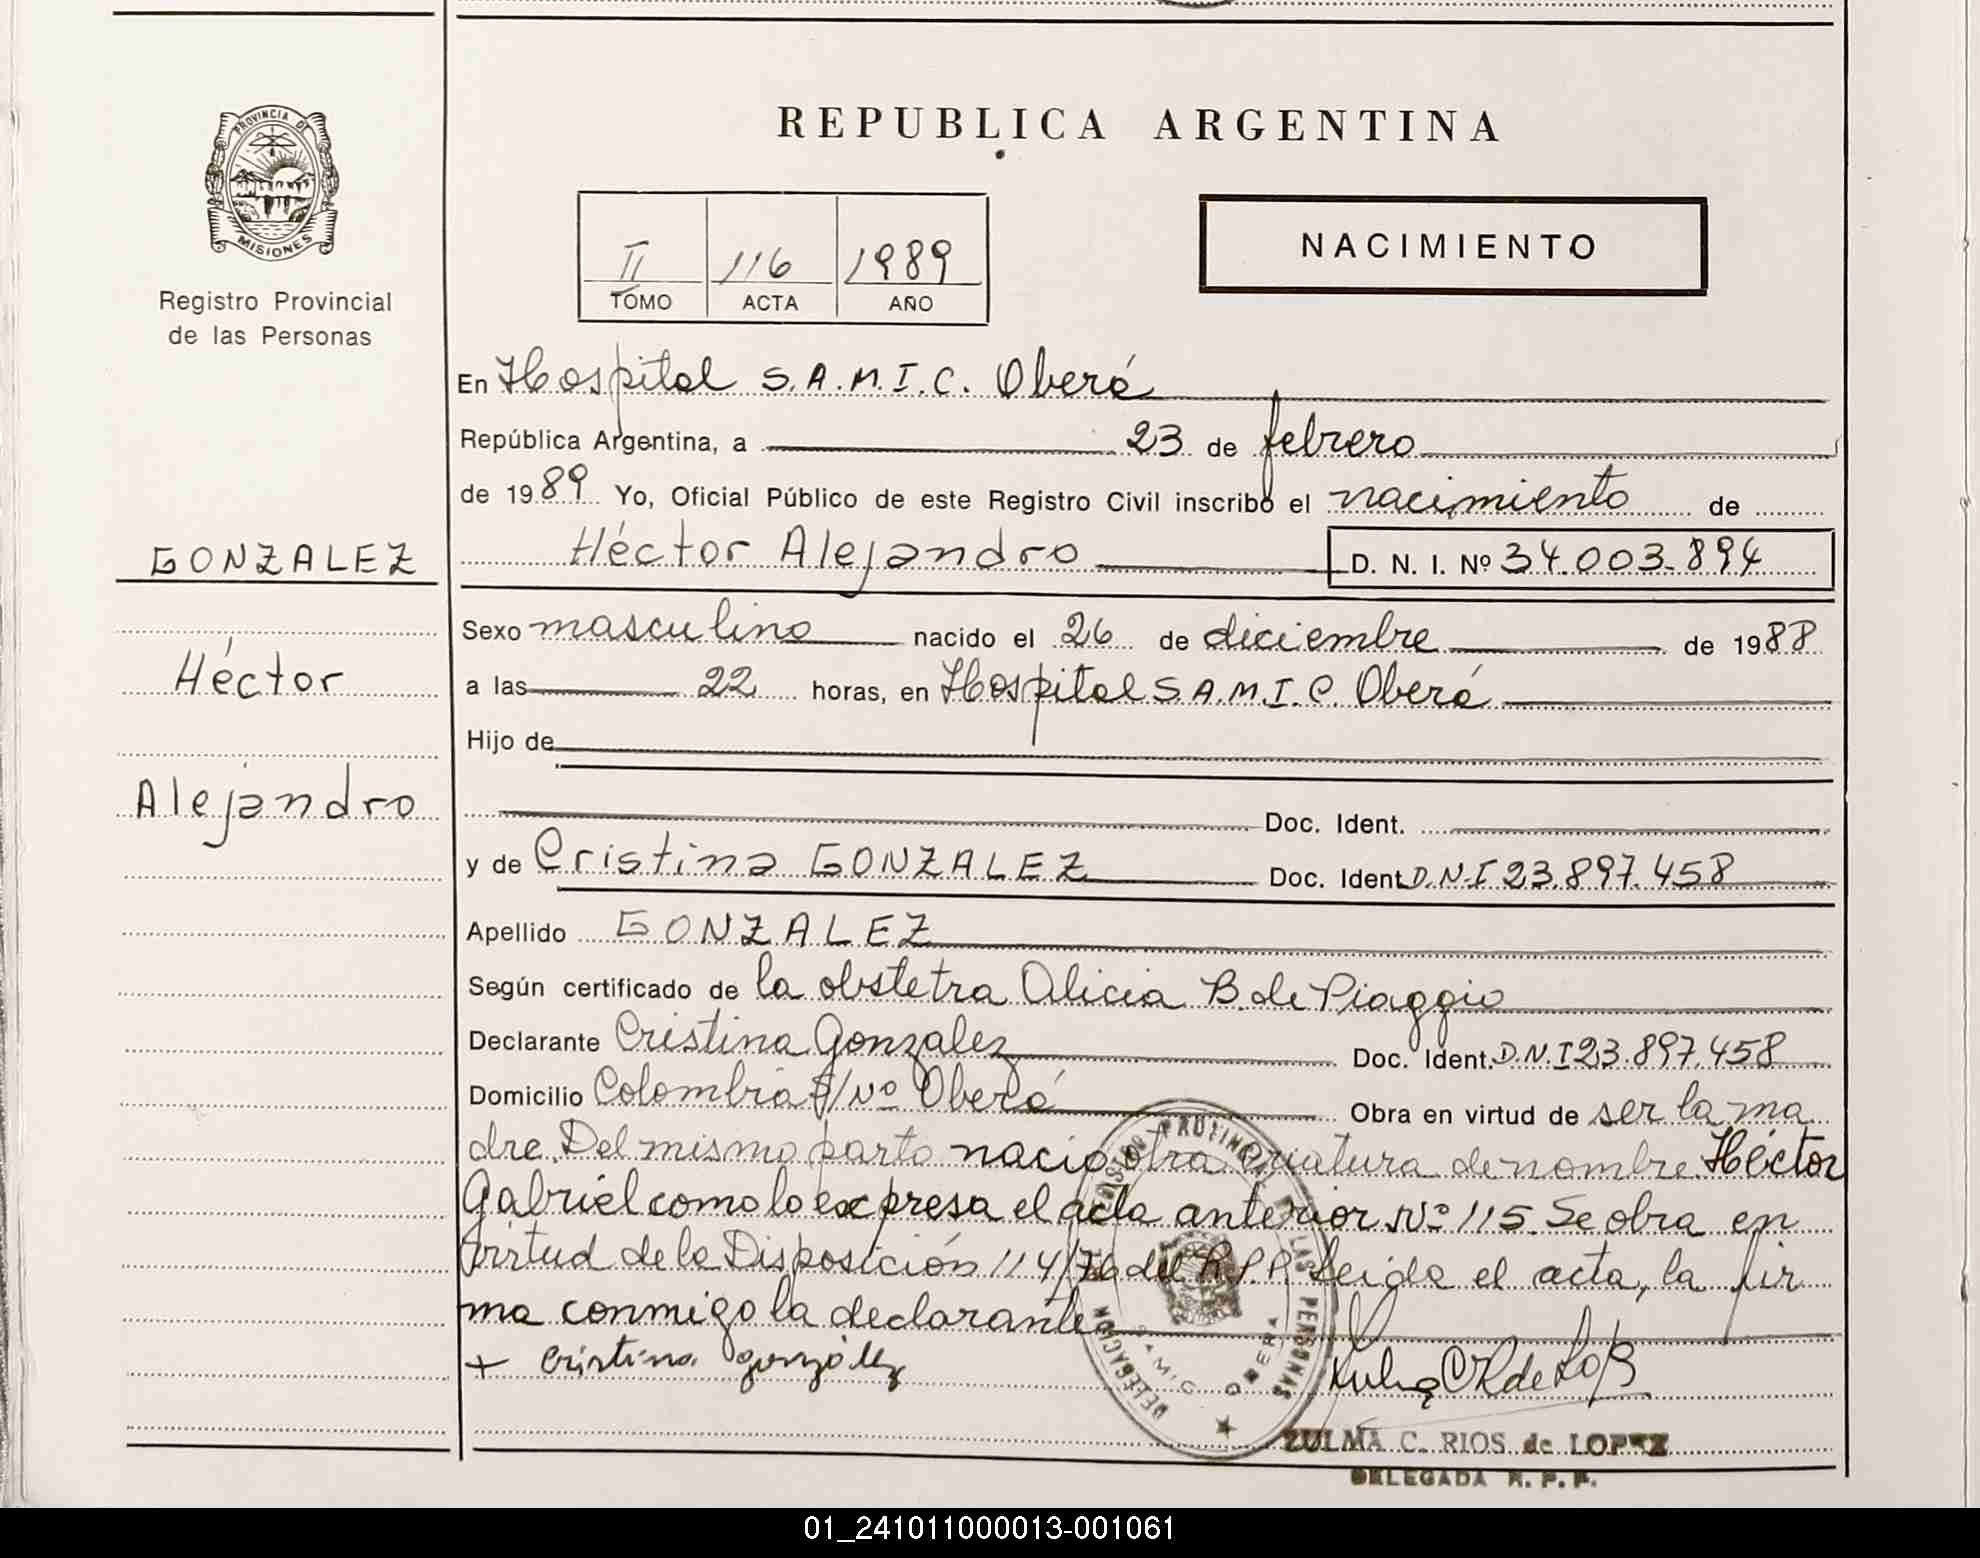 REPUBLICA ARGENTINA
PROVINCIA DE
MISIONES
Registro Provincial
de las Personas
II 116 1989
TOMO ACTA AÑO
NACIMIENTO
En Hospital S.A.M.I.C. Oberá
República Argentina, a 23 de febrero
de 1989 Yo, Oficial Público de este Registro Civil inscribo el nacimiento de
GONZALEZ
Héctor Alejandro D. N. I. Nº 34.003.894
Sexo masculino nacido el 26 de diciembre de 1988
Héctor
a las 22 horas, en Hospital S.A.M.I.C. Oberá
Hijo de
Alejandro
Doc. Ident.
y de Cristina GONZALEZ Doc. Ident. D.N.I 23.897.458
Apellido GONZALEZ
Según certificado de la obstetra Alicia B. de Piaggio
Declarante Cristina Gonzalez Doc. Ident. D.N.I 23.897.458
Domicilio Colombia S/Nº Oberá Obra en virtud de ser la ma
dre. Del mismo parto nació otra criatura de nombre Héctor
Gabriel como lo expresa el acta anterior Nº 115. Se obra en
virtud de la Disposición 114/76 del R.P.P. Leída el acta, la fir
ma conmigo la declarante
+ Cristina gonzález
DELEGACION PROVINCIAL DE LAS PERSONAS
SAMIC OBERA
ZULMA C. RIOS de LOPEZ
DELEGADA R. P. P.
01_241011000013-001061